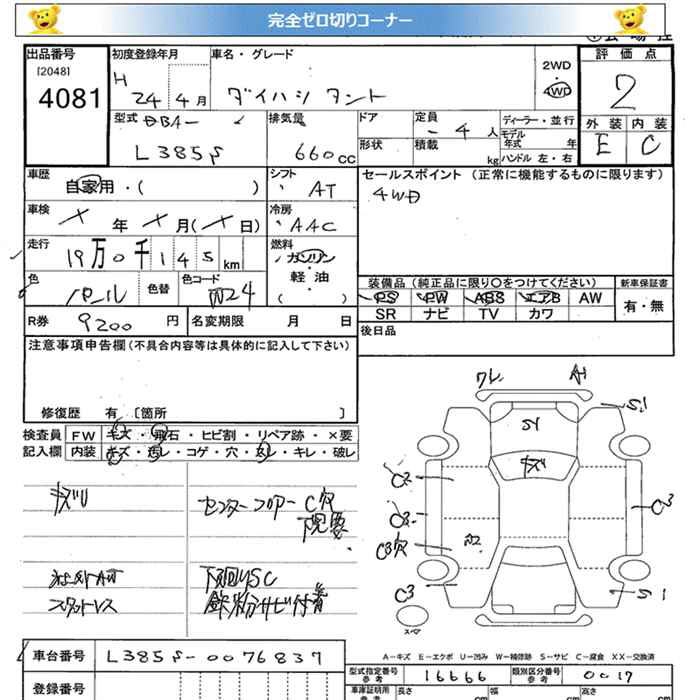 完全ゼロ切りコーナー
出品番号 初度登録年月 車名・グレード 2WD 評価点
[2048] 4081 H 24 年 4 月 ダイハツ タント 4WD 2
型式 DBA- 排気量 ドア 定員 - 4 人 ディーラー・並行 外装 内装
L385S 660 CC 形状 積載 kg モデル年式 年 E C
ハンドル 左・右
車歴 シフト セールスポイント (正常に機能するものに限ります)
自家用・( ) AT 4WD
車検 冷房
× 年 × 月(× 日) AAC
走行 燃料
19万0千145 km ガソリン
軽・油
色 色替 色コード 装備品(純正品に限り○をつけてください) 新車保証書
パール W24 ( ) PS PW ABS エアB AW 有・無
R券 9200 円 名変期限 月 日 SR ナビ TV カワ
後日品
注意事項申告欄(不具合内容等は具体的に記入して下さい)
修復歴 有 〔箇所 〕
検査員 FW キズ・飛石・ヒビ割・リペア跡・×要
記入欄 内装 キズ・汚レ・コゲ・穴・スレ・キレ・破レ
ワレ S1
S1 キズ
C2 C3
C2
C3穴
C3 S1
スペア
キズU センターフロアーC穴
下児要
スタットレス 下回リSC
鉄粉サビ付着
A-キズ E-エクボ U-凹み W-補修跡 S-サビ C-腐食 XX-交換済
車台番号 L385S-0076837
型式指定番号 参考 16666 類別区分番号 参考 0017
登録番号 車庫証明用 参考 長さ cm 幅 cm 高さ cm